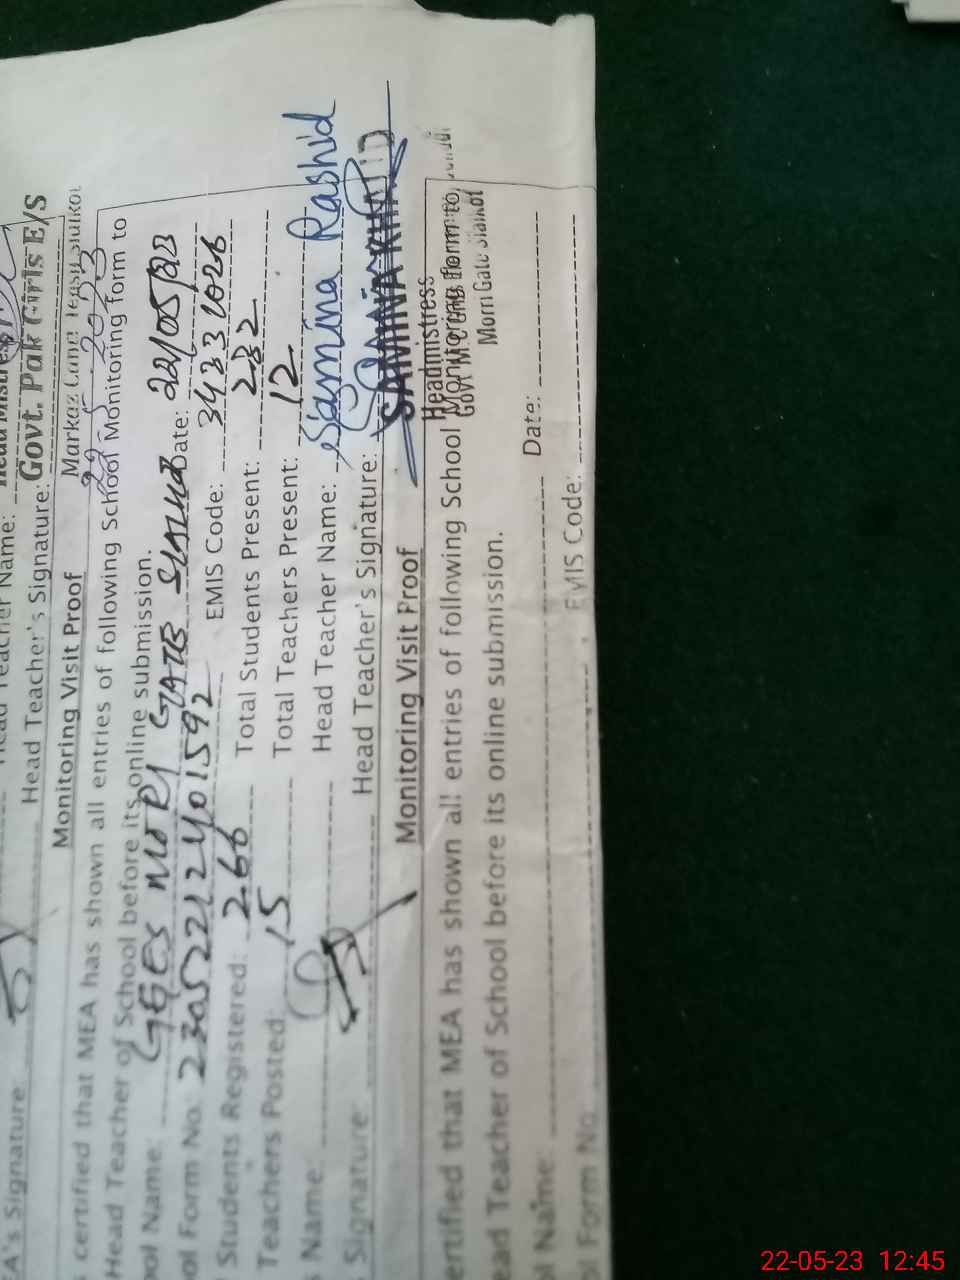 Head Teacher's Signature:
Govt. Pak Girls E/S
Monitoring Visit Proof
certified that MEA has shown all entries of following School Monitoring form to
Head Teacher of School before its online submission.
ool Name: GGES MORI GATE Date: 22/05/23
ol Form No: 23052212401592 EMIS Code: 34331026
Students Registered: 266 Total Students Present: 232
Teachers Posted: 15 Total Teachers Present: 12
Name: Head Teacher Name: Samina Rashid
Signature: Head Teacher's Signature:
SAMINA RHASHID
Headmistress
Morri Gate Sialkot
Monitoring Visit Proof
ertified that MEA has shown all entries of following School Monitoring form to
ead Teacher of School before its online submission.
ol Name: Date:
l Form No EMIS Code:
A's Signature
22-05-23 12:45